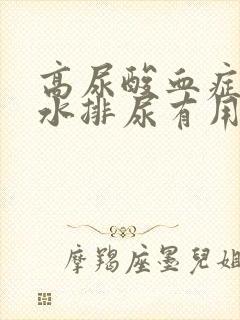 高尿酸血症
水排尿有用
摩羯座墨兒姐